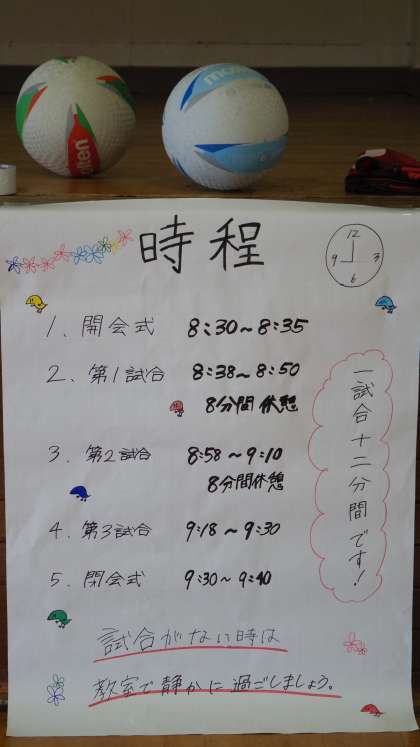 molten
molten
時程
12
9 3
6
1. 開会式 8:30~8:35
2. 第1試合 8:38~8:50
8分間休憩
3. 第2試合 8:58~9:10
8分間休憩
4. 第3試合 9:18~9:30
5. 閉会式 9:30~9:40
一試合十二分間です!
試合がない時は
教室で静かに過ごしましょう。